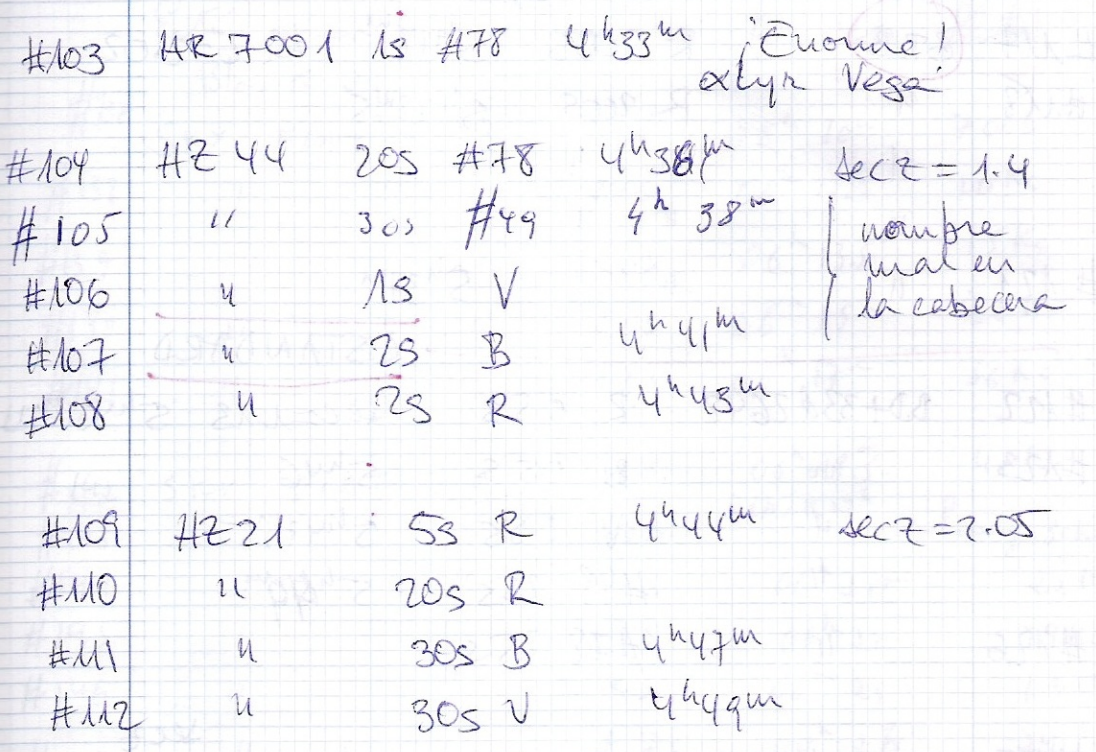 #103 HR 7001 1s #78 4h33m ¡Enorme!
αLyr Vega
#104 HZ 44 20s #78 4h36m sec z = 1.4
#105 " 30s #49 4h 38m nombre
mal en
#106 " 1s V la cabecera
#107 " 2s B 4h41m
#108 " 2s R 4h43m
#109 HZ21 5s R 4h44m sec z = 2.05
#110 " 20s R
#111 " 30s B 4h47m
#112 " 30s V 4h49m